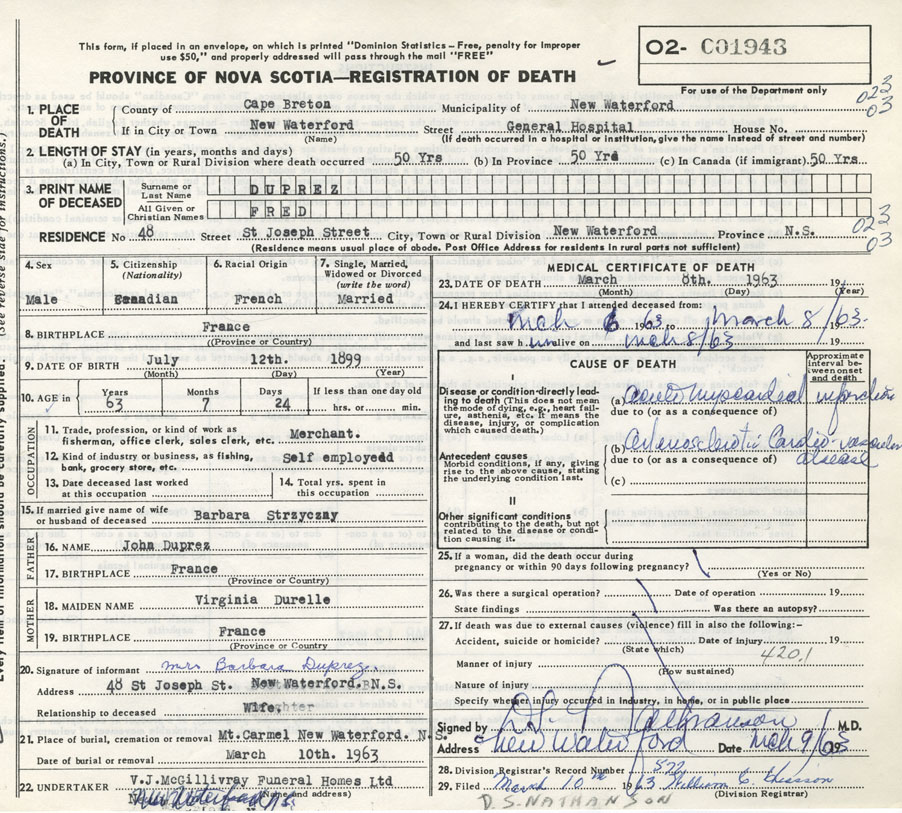 This form, if placed in an envelope, on which is printed "Dominion Statistics - Free, penalty for improper
use $50," and properly addressed will pass through the mail "FREE"
02- C01943
For use of the Department only
PROVINCE OF NOVA SCOTIA—REGISTRATION OF DEATH
023
03
1. PLACE OF DEATH
County of Cape Breton Municipality of New Waterford
If in City or Town New Waterford Street General Hospital House No.
(Name) (If death occurred in a hospital or institution, give the name instead of street and number)
2. LENGTH OF STAY (in years, months and days)
(a) In City, Town or Rural Division where death occurred 50 Yrs (b) In Province 50 Yrs (c) In Canada (if immigrant) 50 Yrs.
3. PRINT NAME OF DECEASED
Surname or Last Name DUPREZ
All Given or Christian Names FRED
023
03
RESIDENCE No 48 Street St Joseph Street City, Town or Rural Division New Waterford Province N.S.
(Residence means usual place of abode. Post Office Address for residents in rural parts not sufficient)
4. Sex
Male
5. Citizenship (Nationality)
Canadian
6. Racial Origin
French
7. Single, Married, Widowed or Divorced (write the word)
Married
8. BIRTHPLACE France
(Province or Country)
9. DATE OF BIRTH July 12th. 1899
(Month) (Day) (Year)
10. AGE in Years Months Days If less than one day old
63 7 24 hrs. or min.
OCCUPATION
11. Trade, profession, or kind of work as fisherman, office clerk, sales clerk, etc. Merchant.
12. Kind of industry or business, as fishing, bank, grocery store, etc. Self employed
13. Date deceased last worked at this occupation
14. Total yrs. spent in this occupation
15. If married give name of wife or husband of deceased Barbara Strzyczny
FATHER
16. NAME John Duprez
17. BIRTHPLACE France
(Province or Country)
MOTHER
18. MAIDEN NAME Virginia Durelle
19. BIRTHPLACE France
(Province or Country)
20. Signature of informant Mrs Barbara Duprez.
Address 48 St Joseph St. New Waterford. N.S.
Relationship to deceased Wife
21. Place of burial, cremation or removal Mt.Carmel New Waterford. N.S.
Date of burial or removal March 10th. 1963
22. UNDERTAKER V.J.McGillivray Funeral Homes Ltd
(Name and address)
New Waterford N.S.
MEDICAL CERTIFICATE OF DEATH
23. DATE OF DEATH March 8th. 1963 19
(Month) (Day) (Year)
24. I HEREBY CERTIFY that I attended deceased from:
Mch 6 1963 to March 8/63 19
and last saw him alive on Mch 8/63 19
CAUSE OF DEATH
Approximate interval between onset and death
I
Disease or condition directly leading to death (This does not mean the mode of dying, e.g., heart failure, asthenia, etc. It means the disease, injury, or complication which caused death.)
(a) Acute Myocardial infarction
due to (or as a consequence of)
Antecedent causes
Morbid conditions, if any, giving rise to the above cause, stating the underlying condition last.
(b) Arteriosclerotic Cardio-vascular disease
due to (or as a consequence of)
(c)
II
Other significant conditions
contributing to the death, but not related to the disease or condition causing it.
25. If a woman, did the death occur during pregnancy or within 90 days following pregnancy?
(Yes or No)
26. Was there a surgical operation? Date of operation 19
State findings Was there an autopsy?
27. If death was due to external causes (violence) fill in also the following:-
Accident, suicide or homicide? Date of injury 19
(State which)
420.1
Manner of injury
(How sustained)
Nature of injury
Specify whether injury occurred in industry, in home, or in public place
Signed by D.S. Nathanson M.D.
Address New Waterford Date Mch 9/63
28. Division Registrar's Record Number 822
29. Filed March 10th 1963 William C
(Division Registrar)
D.S. NATHANSON
(See reverse side for instructions.)